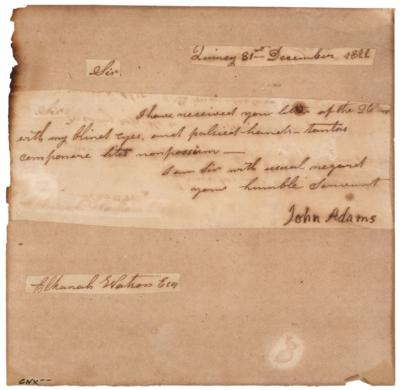 Quincy 31st December 1822
Sir.
I have received you letter of the 26
with my blind eyes, and palsied hands tantas
componere lites non possum —
I am Sir with usual regard
your humble Servant
John Adams
Elkanah Watson Esq